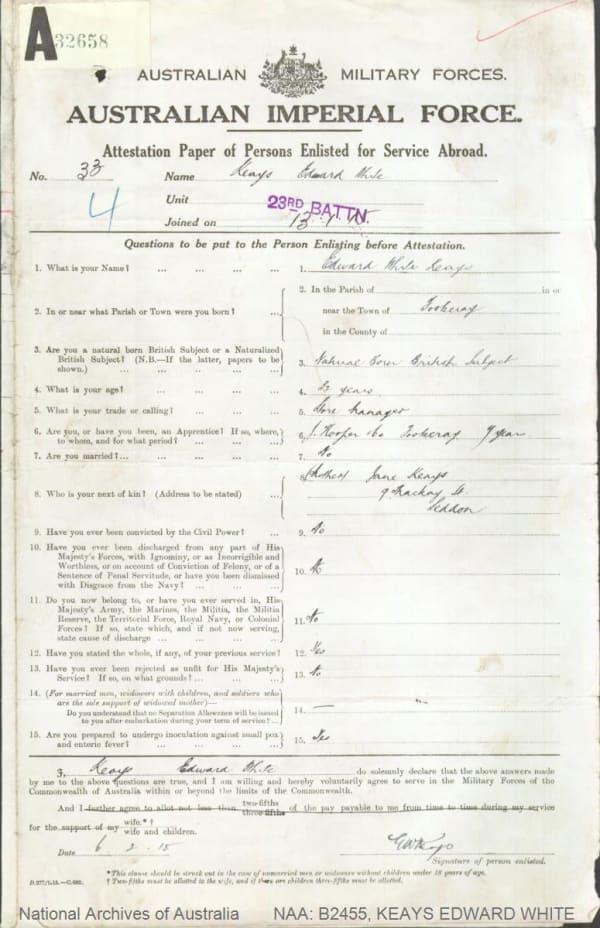 A 32658
AUSTRALIAN MILITARY FORCES.
AUSTRALIAN IMPERIAL FORCE.
Attestation Paper of Persons Enlisted for Service Abroad.
No. 33 Name Keays Edward White
4 Unit 23RD BATTN.
Joined on 13 1 15
Questions to be put to the Person Enlisting before Attestation.
1. What is your Name? ... ... ... ... 1. Edward White Keays
2. In or near what Parish or Town were you born? ... 2. In the Parish of in or
near the Town of Footscray
in the County of
3. Are you a natural born British Subject or a Naturalized British Subject? (N.B.—If the latter, papers to be shown.) ... ... ... ... 3. Natural Born British Subject
4. What is your age? ... ... ... ... 4. years
5. What is your trade or calling? ... ... ... 5. Store Manager
6. Are you, or have you been, an Apprentice? If so, where, to whom, and for what period? ... ... ... 6. J. Hooper & Co Footscray 7 year
7. Are you married?... ... ... ... ... 7. No
8. Who is your next of kin? (Address to be stated) ... 8. (Mother) Jane Keays
9 Mackay St.
Seddon
9. Have you ever been convicted by the Civil Power? ... 9. No
10. Have you ever been discharged from any part of His Majesty's Forces, with Ignominy, or as Incorrigible and Worthless, or on account of Conviction of Felony, or of a Sentence of Penal Servitude, or have you been dismissed with Disgrace from the Navy? ... ... ... 10. No
11. Do you now belong to, or have you ever served in, His Majesty's Army, the Marines, the Militia, the Militia Reserve, the Territorial Force, Royal Navy, or Colonial Forces? If so, state which, and if not now serving, state cause of discharge ... ... ... ... 11. No
12. Have you stated the whole, if any, of your previous service? 12. Yes
13. Have you ever been rejected as unfit for His Majesty's Service? If so, on what grounds? ... ... ... 13. No
14. (For married men, widowers with children, and soldiers who are the sole support of widowed mother)—
Do you understand that no Separation Allowance will be issued to you after embarkation during your term of service? ... 14. —
15. Are you prepared to undergo inoculation against small pox and enteric fever? ... ... ... ... 15. Yes
I, Keays Edward White do solemnly declare that the above answers made
by me to the above questions are true, and I am willing and hereby voluntarily agree to serve in the Military Forces of the
Commonwealth of Australia within or beyond the limits of the Commonwealth.
And I further agree to allot not less than two-fifths three-fifths of the pay payable to me from time to time during my service
for the support of my wife.* † wife and children.
Date 6 . 2 . 15 EWKeays
Signature of person enlisted.
*This clause should be struck out in the case of unmarried men or widowers without children under 18 years of age.
† Two-fifths must be allotted to the wife, and if there are children three-fifths must be allotted.
National Archives of Australia NAA: B2455, KEAYS EDWARD WHITE